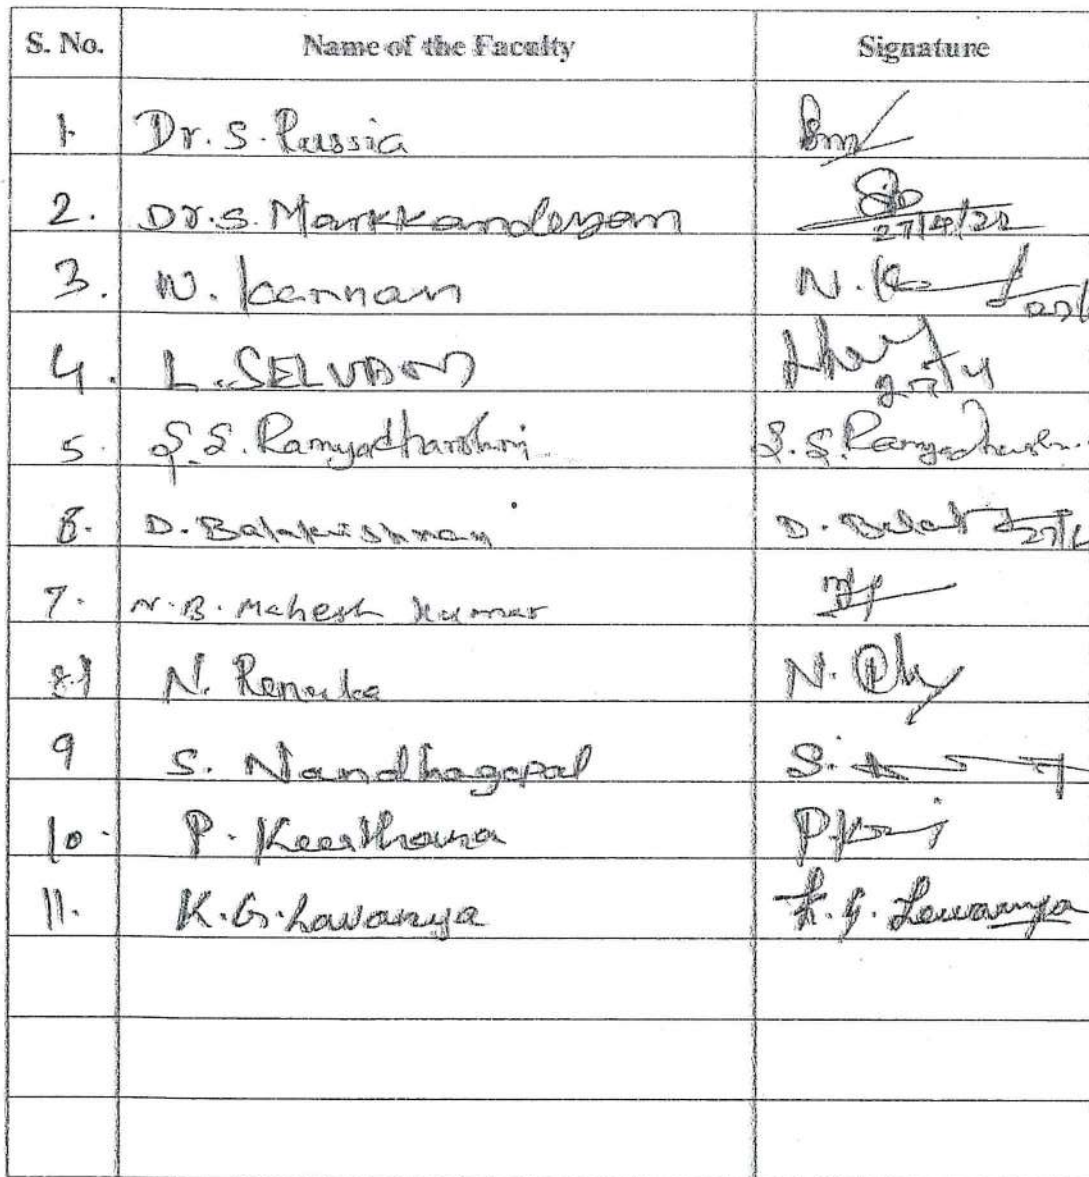 S. No. Name of the Faculty Signature
1. Dr. S. Russia
2. Dr. S. Markkandeyan 27/4/22
3. N. Kannan N. K
4. L. SELVAM
5. S. S. Ramyadharshni S. S. Ramyadharshni
6. D. Balakrishnan D. Balak
7. N. B. Mahesh Kumar
8. N. Renuka N.
9 S. Nandhagopal S.
10. P. Keerthana P.
11. K. G. Lavanya K. G. Lavanya